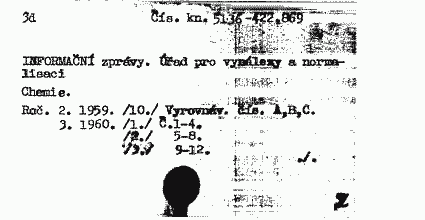 3d Čís. kn. 5136-422.869
INFORMAČNÍ zprávy. Úřad pro vynálezy a norma-
lisaci
Chemie.
Roč. 2. 1959. /10./ Vyrovnáv. čís. A,B,C.
3. 1960. /1./ Č.1-4.
/2./ 5-8.
/3./ 9-12.
./.
Z